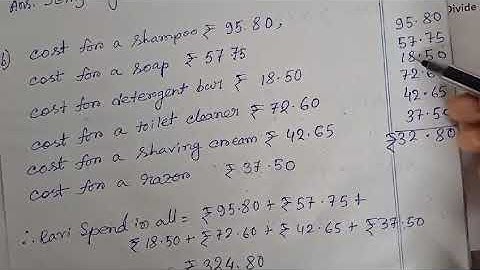 Ans.
b) cost for a shampoo ₹ 95.80,
cost for a soap ₹ 57.75
cost for detergent bar ₹ 18.50
cost for a toilet cleaner ₹ 72.60
cost for a shaving cream ₹ 42.65
cost for a razor ₹ 37.50
∴ Ravi Spend in all = ₹ 95.80 + ₹ 57.75 +
₹ 18.50 + ₹ 72.60 + ₹ 42.65 + ₹ 37.50
₹ 324.80
95.80
57.75
18.50
72.6
42.65
37.50
₹32 . 80
Divide